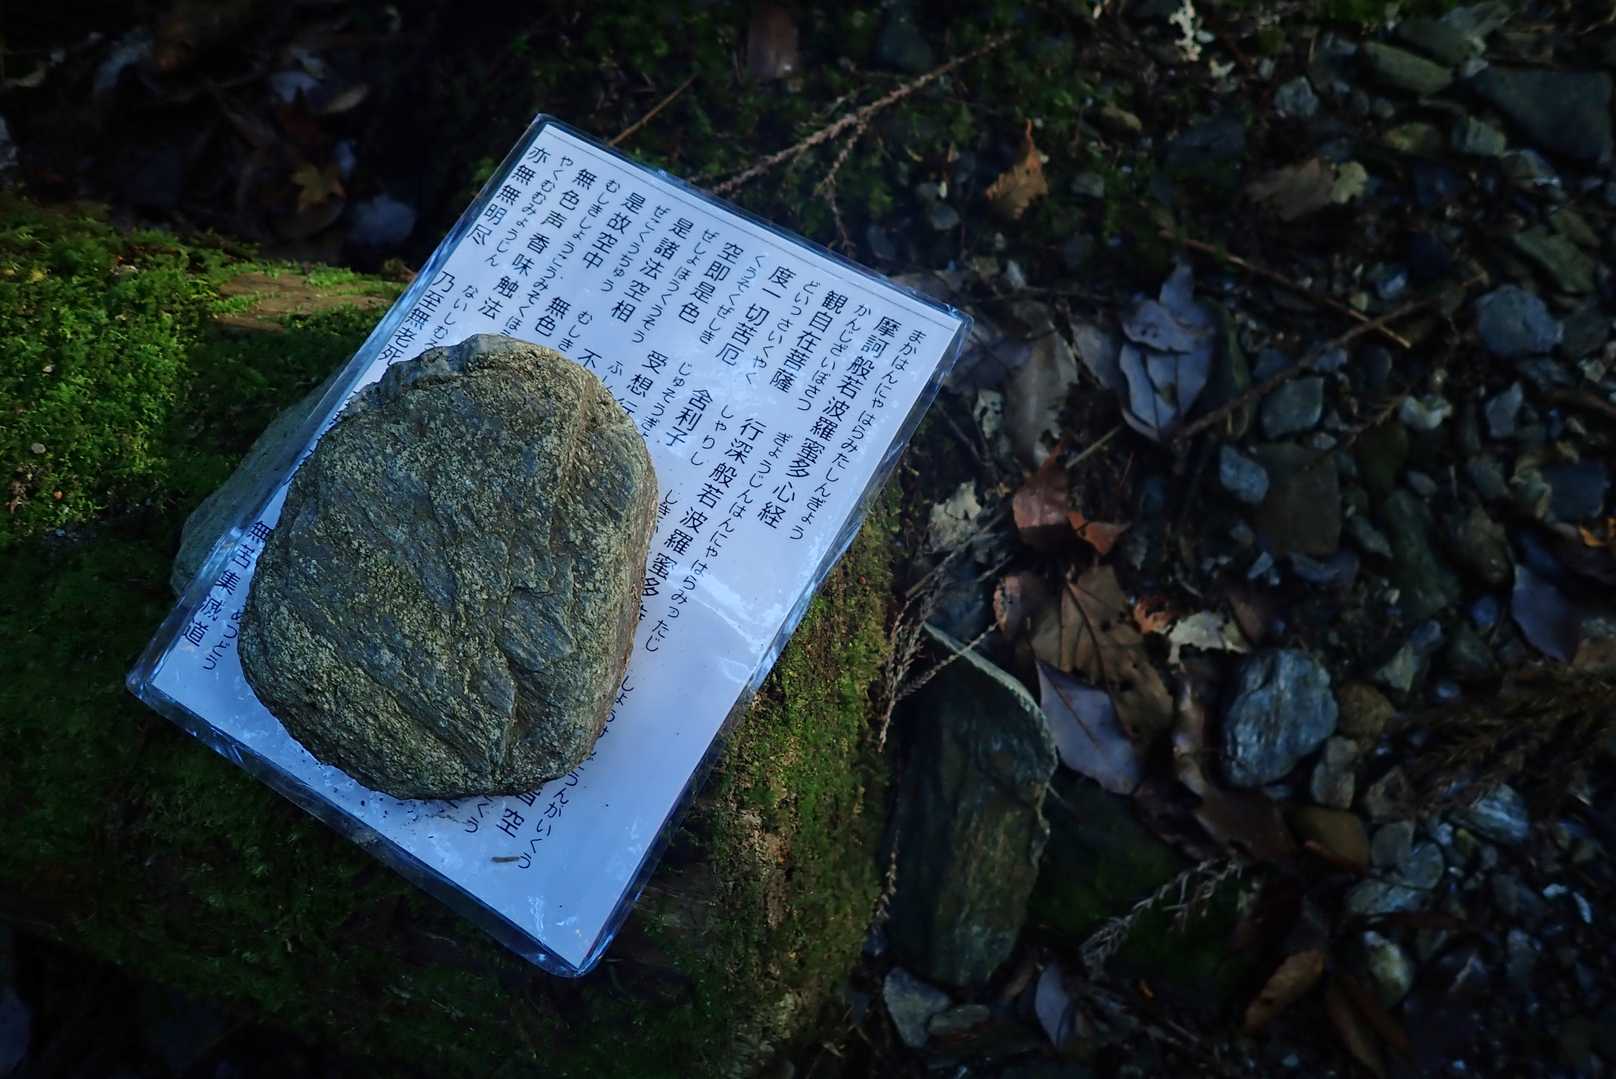 まかはんにゃはらみたしんぎょう
摩訶般若波羅蜜多心経
かんじざいぼさつ ぎょうじんはんにゃはらみったじ うんかいくう
観自在菩薩 行深般若波羅蜜多 皆空
どいっさいくやく しゃりし しき
度一切苦厄 舎利子
くうそくぜしき じゅそうぎょ
空即是色 受想
ぜしょほうくうそう ふ
是諸法空相 不
ぜこくうちゅう むしき
是故空中 無色
むしきしょうこうみそくほ
無色声香味触法
やくむむみょうじん ないしむろ
亦無無明尽 乃至無老死
めつどう
無苦集滅道